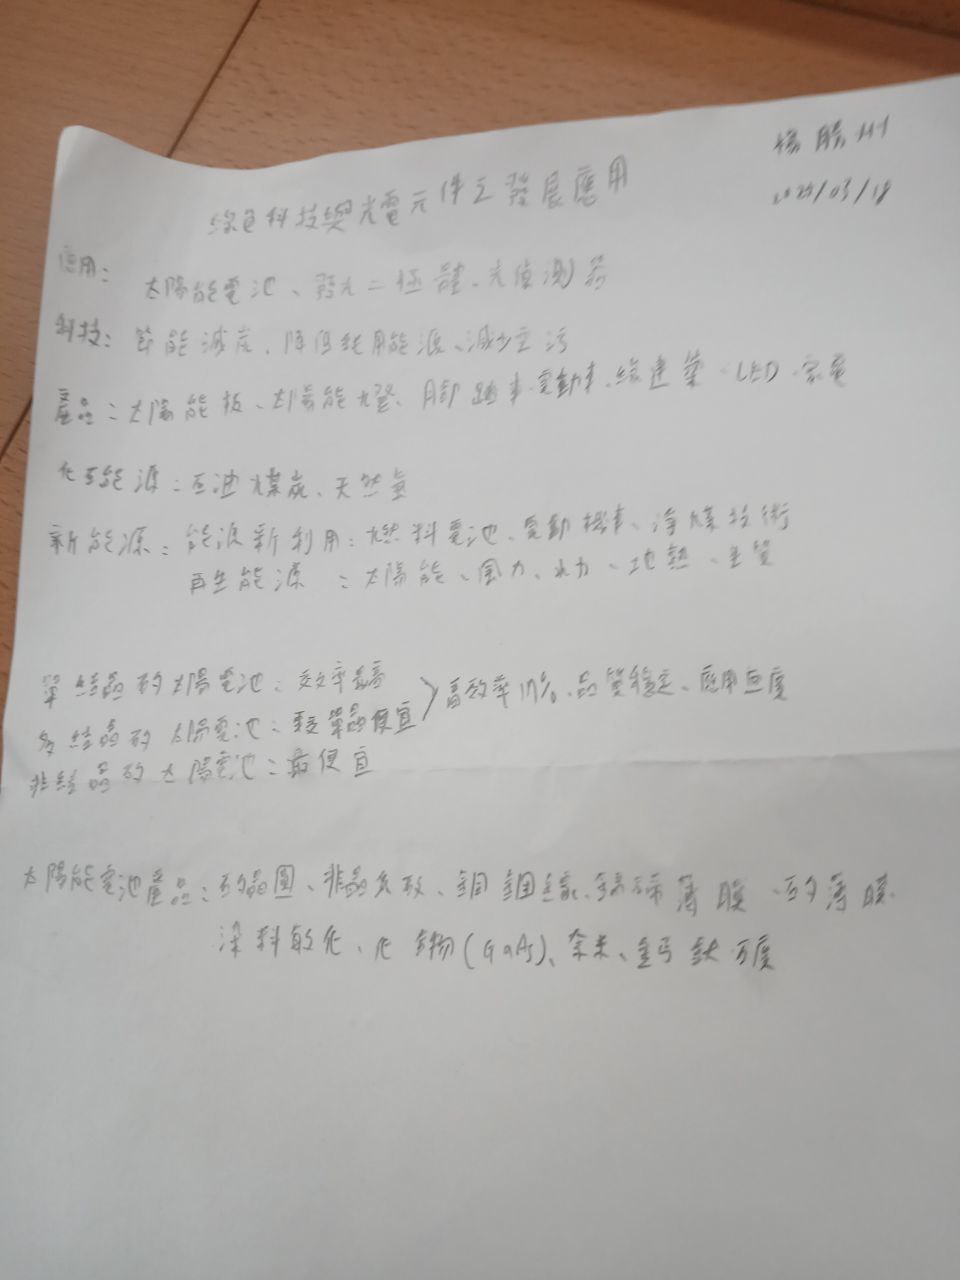 楊勝州
2025/03/18
綠色科技與光電元件之發展應用
應用：太陽能電池、發光二極體、光偵測器
科技：節能減炭、降低耗用能源、減少空污
產品：太陽能板、太陽能燈、腳踏車、電動車、綠建築、LED、家電
化石能源：石油、煤炭、天然氣
新能源：能源新利用：燃料電池、電動機車、淨煤技術
再生能源：太陽能、風力、水力、地熱、生質
單結晶矽太陽電池：效率最高
多結晶矽太陽電池：較單晶便宜 〉高效率 、品質穩定、應用
非結晶矽太陽電池：最便宜
太陽能電池產品：矽晶圓、非晶系矽、銅銦鎵、鎘碲薄膜、矽薄膜、
染料敏化、化 物(GaAs)、奈米、鈣鈦